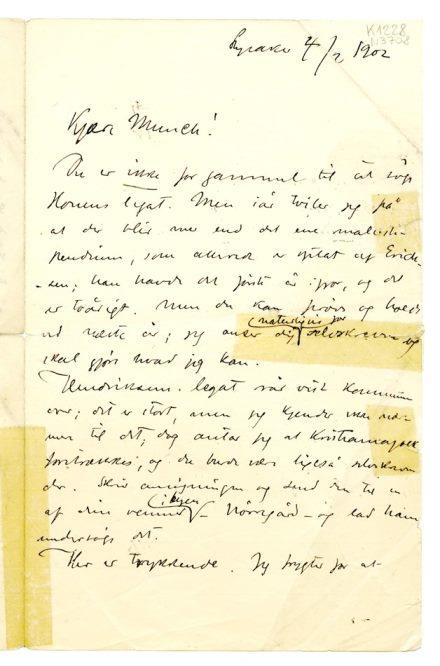 K1228
N3708
Lysaker 4/2 1902
Kjære Munch!
Du er ikke for gammel til at søge
Houens legat. Men iår tviler jeg på
at der blir mer end det ene malersti-
pendium, som allerede er optat af Erich-
sen; han havde det første år ifjor, og det
er toårigt. Men du kan prøve og
ved næste år; jeg anser dig naturligvis for selvskreven og
skal gjøre hvad jeg kan.
legat rår vist kommunen
over; det er stort, men jeg kjender ikke
til det; dog antar jeg at Kristianiafolk
foretrækkes, og du burde være ligeså selvskreven
der. Skriv ansøgningen og send den til en
af dine venner i byen – Nørregård – og lad ham
undersøge det.
Her er trykkende. Jeg frygter for at